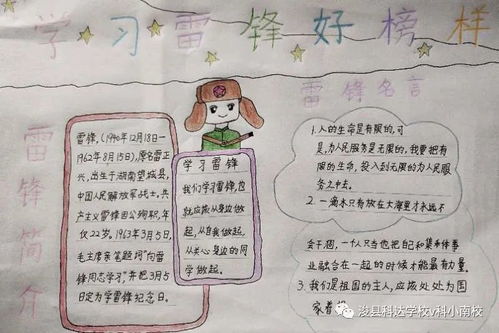 学习雷锋好榜样
雷锋简介
雷锋,(1940年12月18日—
1962年8月15日),原名雷正
兴,出生于湖南望城县,
中国人民解放军战士,共
产主义雷锋因公殉职,年
仅22岁。1963年3月5日,
毛主席亲笔题词"向雷
锋同志学习",并把3月5
日定为学雷锋纪念日。
学习雷锋
我们学习雷锋,也
就应该从身边做
起,从自我做起,
从关心身边的同
学做起。
雷锋名言
1.人的生命是有限的,可
是,为人民服务是无限的,我要把有
限的生命,投入到无限的为人民服
务之中去。
2.一滴水只有放在大海里才永远不
会干涸,一个人只当他把自己和集体
业融合在一起的时候才能最有力量。
3.我们是祖国的主人,应该处处为国
家着想
浚县科达学校v科小南校